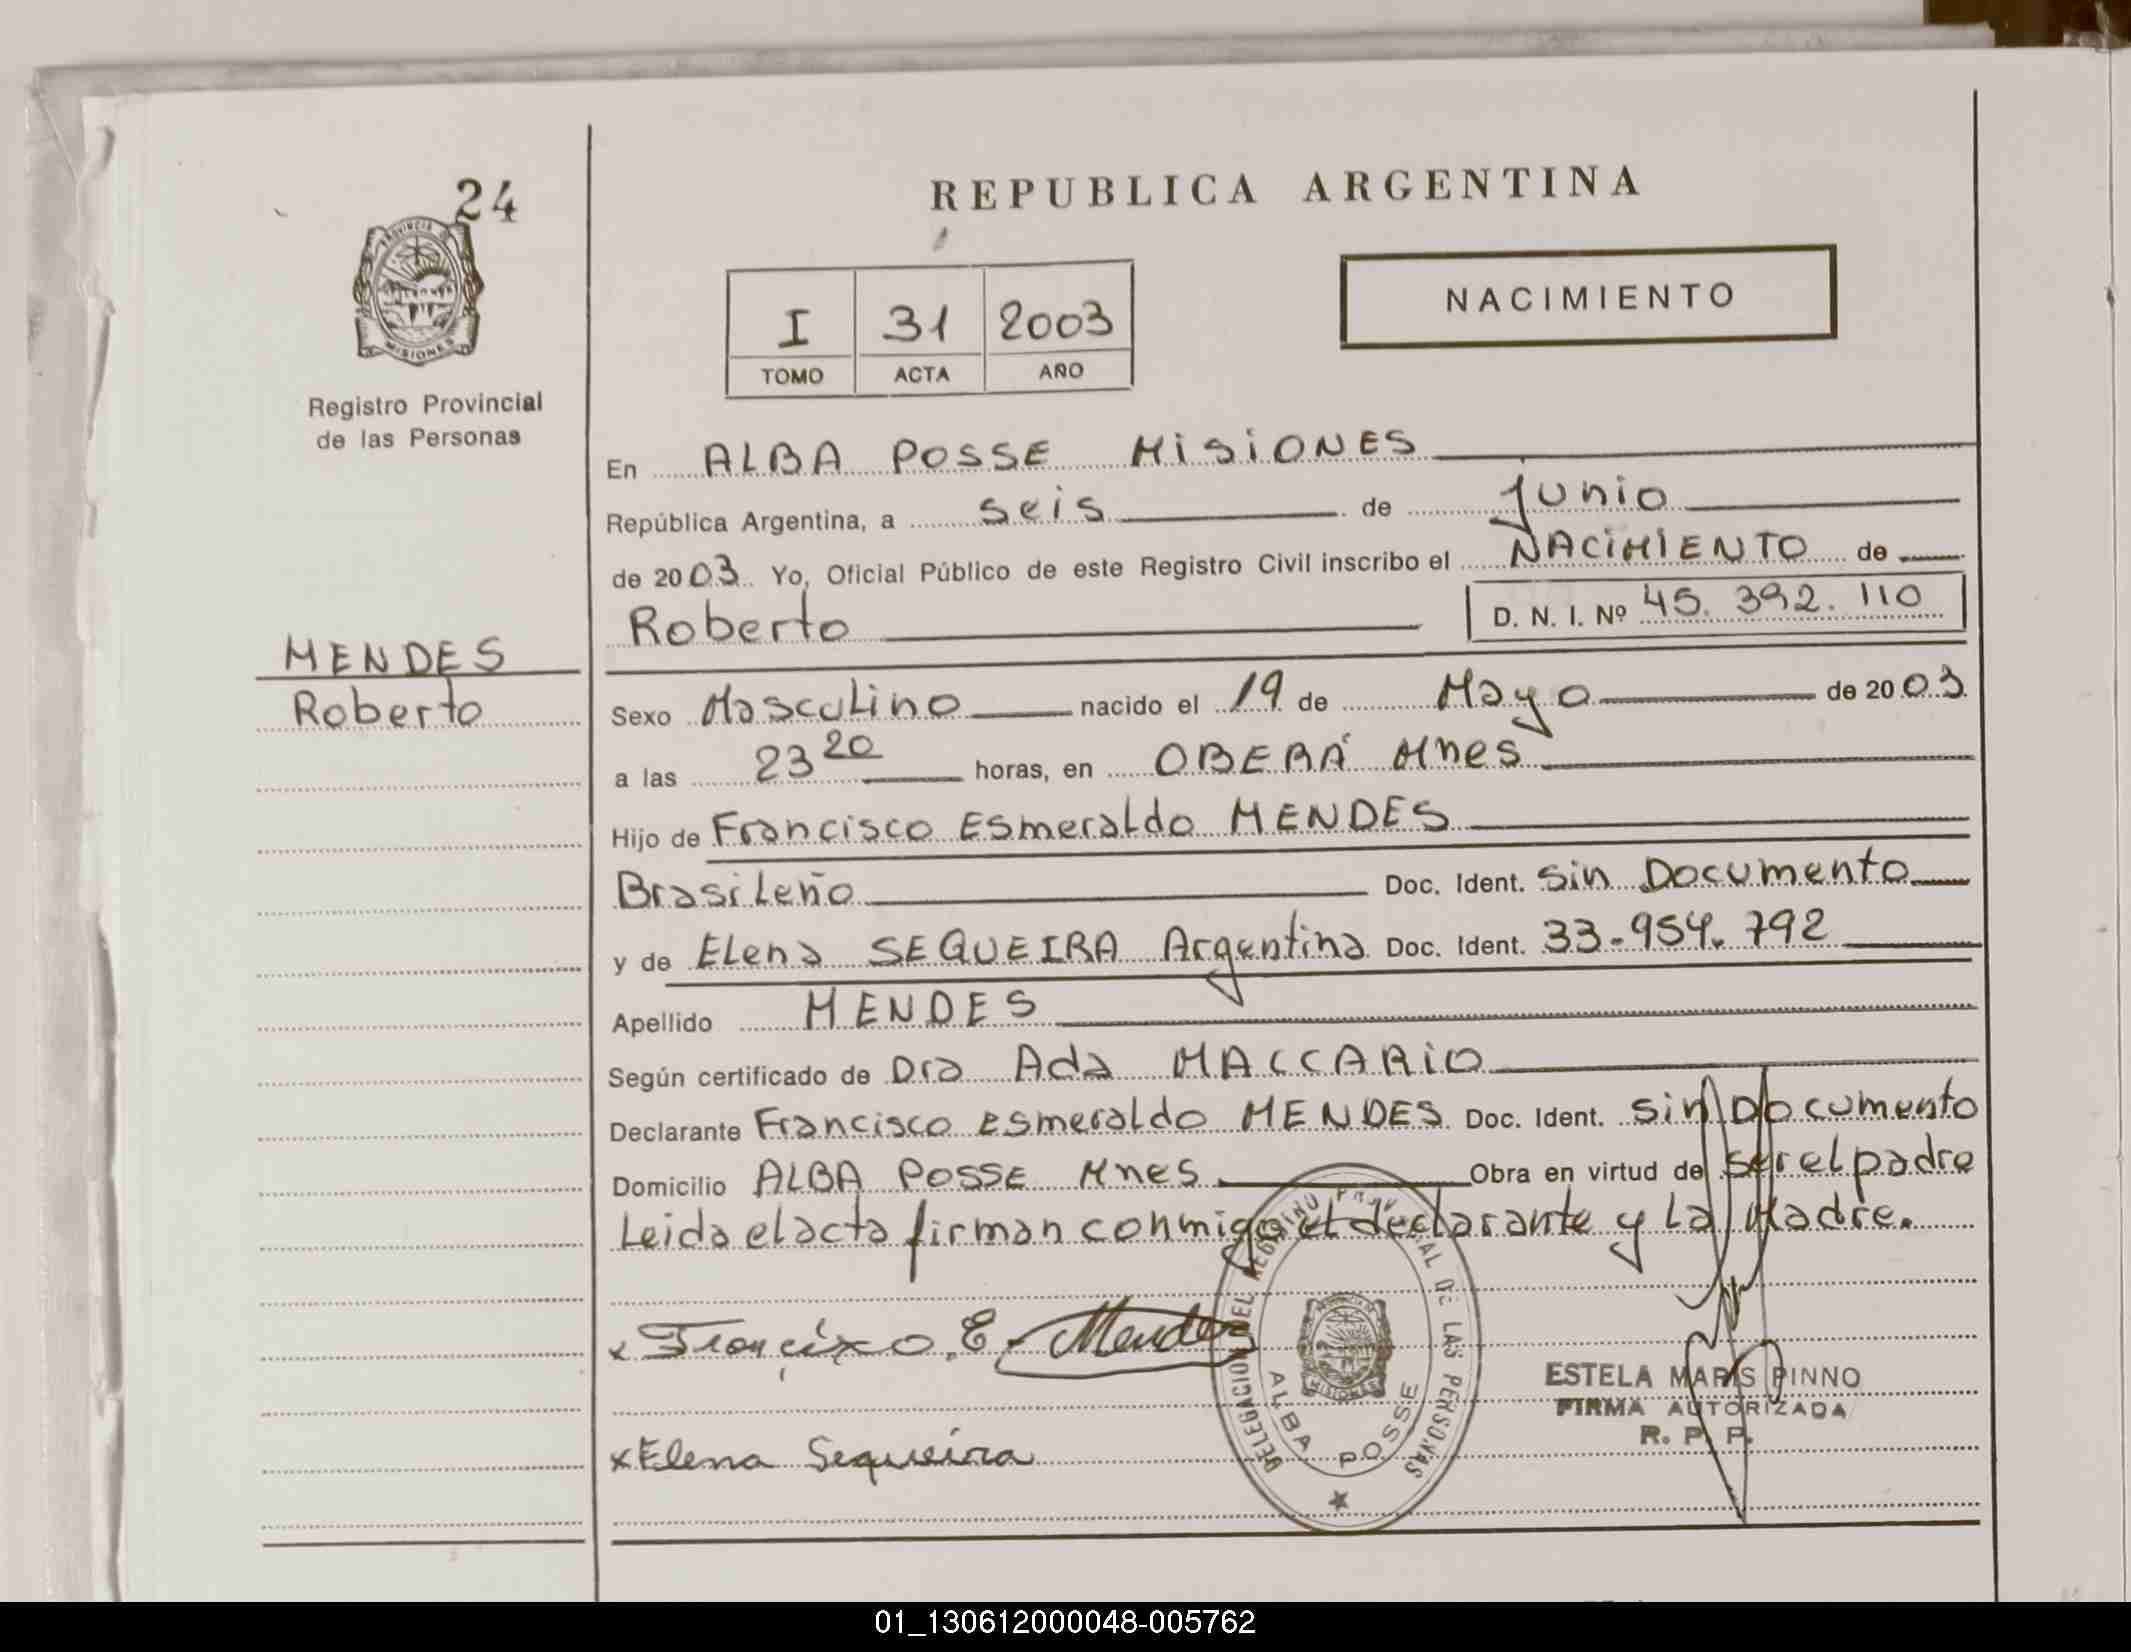 24
PROVINCIA DE
MISIONES
Registro Provincial
de las Personas
MENDES
Roberto
REPUBLICA ARGENTINA
I 31 2003
TOMO ACTA AÑO
NACIMIENTO
En ALBA POSSE MISIONES
República Argentina, a seis de Junio
de 2003 Yo, Oficial Público de este Registro Civil inscribo el NACIMIENTO de
Roberto D. N. I. Nº 45.392.110
Sexo Masculino nacido el 19 de Mayo de 2003
a las 23 20 horas, en OBERÁ Mnes
Hijo de Francisco Esmeraldo MENDES
Brasileño Doc. Ident. Sin Documento
y de Elena SEQUEIRA Argentina Doc. Ident. 33-954.792
Apellido MENDES
Según certificado de Dra Ada MACCARIO
Declarante Francisco Esmeraldo MENDES Doc. Ident. Sin Documento
Domicilio ALBA POSSE Mnes Obra en virtud de ser el padre
Leida el acta firman conmigo el declarante y La Madre.
x Francixo. E. Mendes
DELEGACION DEL REGISTRO PROVINCIAL DE LAS PERSONAS
ALBA POSSE
MISIONES
ESTELA MARIS PINNO
FIRMA AUTORIZADA
R. P. P.
x Elena Sequeira
01_130612000048-005762